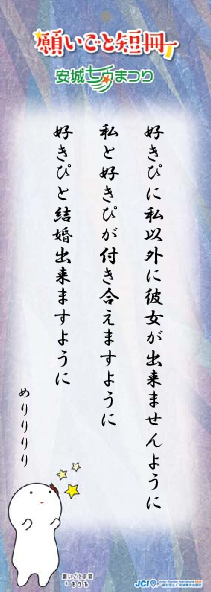 願いごと短冊
安城七夕まつり
好きぴに私以外に彼女が出来ませんように
私と好きぴが付き合えますように
好きぴと結婚出来ますように
めりりりり
願いごと短冊
JCI